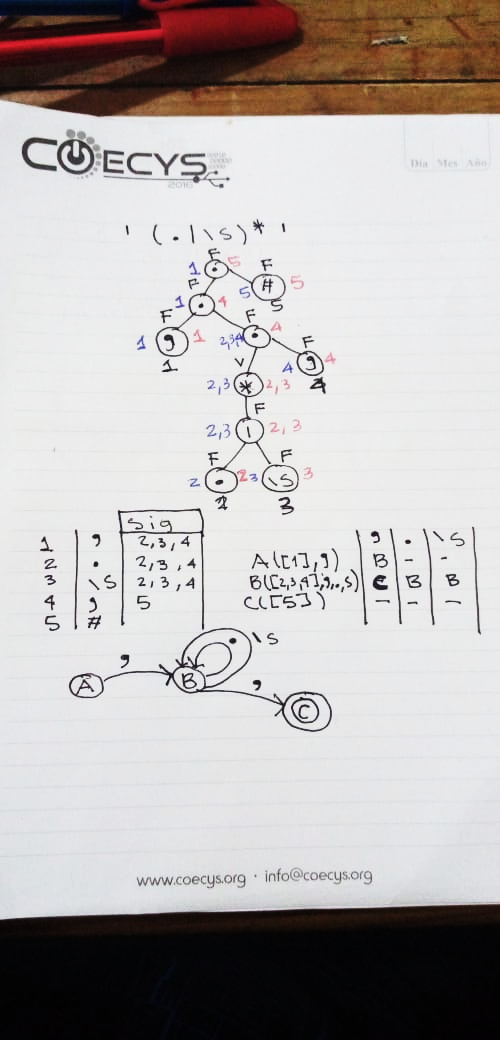 COECYS
2016
Día Mes Año
' (.|\s)* '
F
1 . 5
F
5 # 5
5
F
1 . 4
F
1 , 1
1
F
2,3,4 . 4
F
4 , 4
4
V
2,3 * 2,3
F
2,3 | 2,3
F
2 . 2
2
F
3 \s 3
3
Sig
1 , 2,3,4
2 . 2,3,4
3 \s 2,3,4
4 , 5
5 #
, . \s
A([1],,) B - -
B([2,3,4],,,.,\s) C B B
C([5]) - - -
A , B . \s , C
www.coecys.org · info@coecys.org